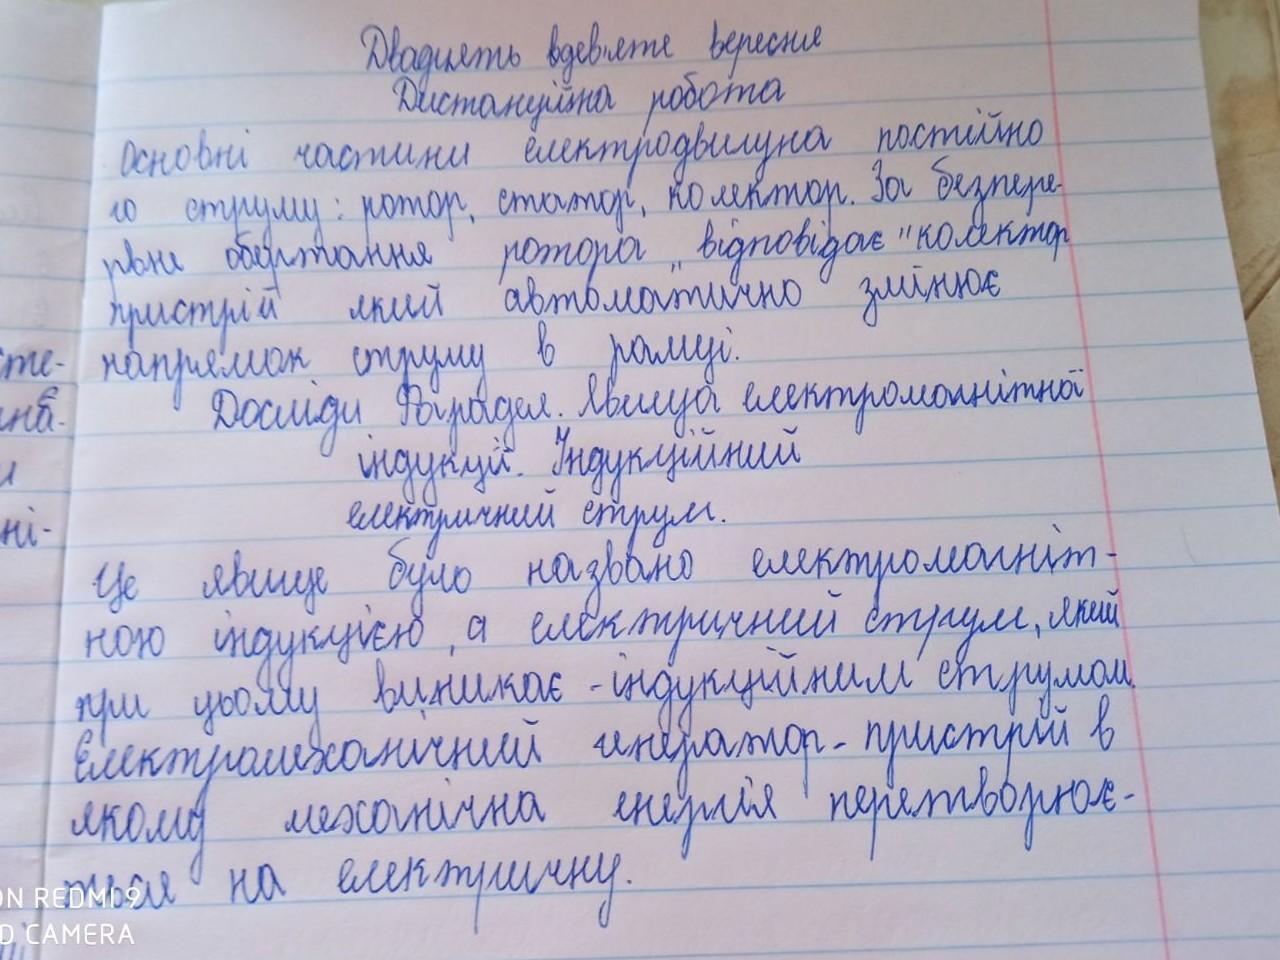 Двадцять вдевяте вересня
Дистанційна робота
Основні частини електродвигуна постійно
го струму: ротор, статор, колектор. За безпере-
рвне обертання ротора „відповідає" колектор
пристрій який автоматично змінює
напрямок струму в рамці.
Досліди Фарадея. Явища електромагнітної
індукції. Індукційний
електричний струм.
Це явище було названо електромагніт-
ною індукцією, а електричний струм, який
при цьому виникає - індукційним струмом.
Електромеханічний генератор - пристрій в
якому механічна енергія перетворює-
ться на електричну.
сте-
на-
ні-
ON REDMI 9
D CAMERA